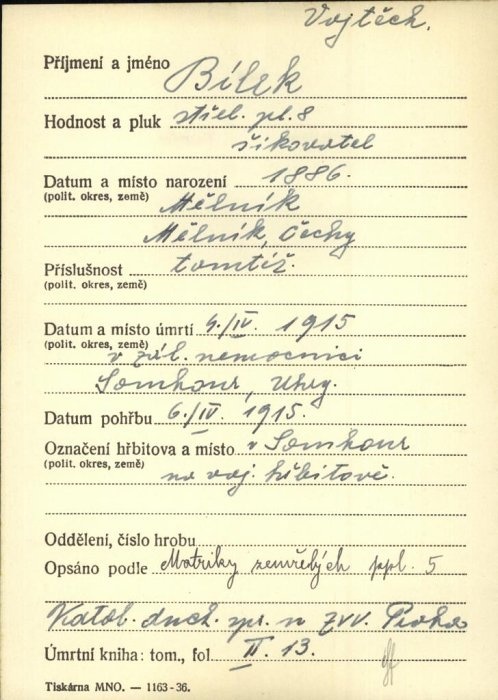 Vojtěch.
Příjmení a jméno Bílek
Hodnost a pluk střel. pl. 8
šikovatel
Datum a místo narození 1886.
(polit. okres, země) Mělník
Mělník, Čechy
Příslušnost tomtéž.
(polit. okres, země)
Datum a místo úmrtí 4./IV. 1915
(polit. okres, země) v zál. nemocnici
Somkour, Uhry.
Datum pohřbu 6./IV. 1915.
Označení hřbitova a místo v Somkour
(polit. okres, země) na voj. hřbitově.
Oddělení, číslo hrobu
Opsáno podle Matriky zemřelých ppl. 5
Katol. duch. spr. u ZVV. Praha
Úmrtní kniha: tom., fol II. 13.
Tiskárna MNO. — 1163-36.